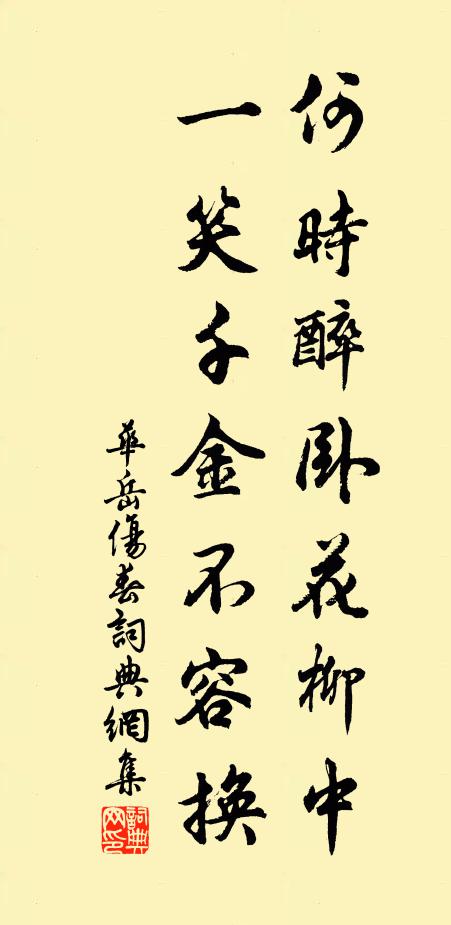 何時醉臥花柳中
一笑千金不容換
華岳傷春詞典網集
詞典網印